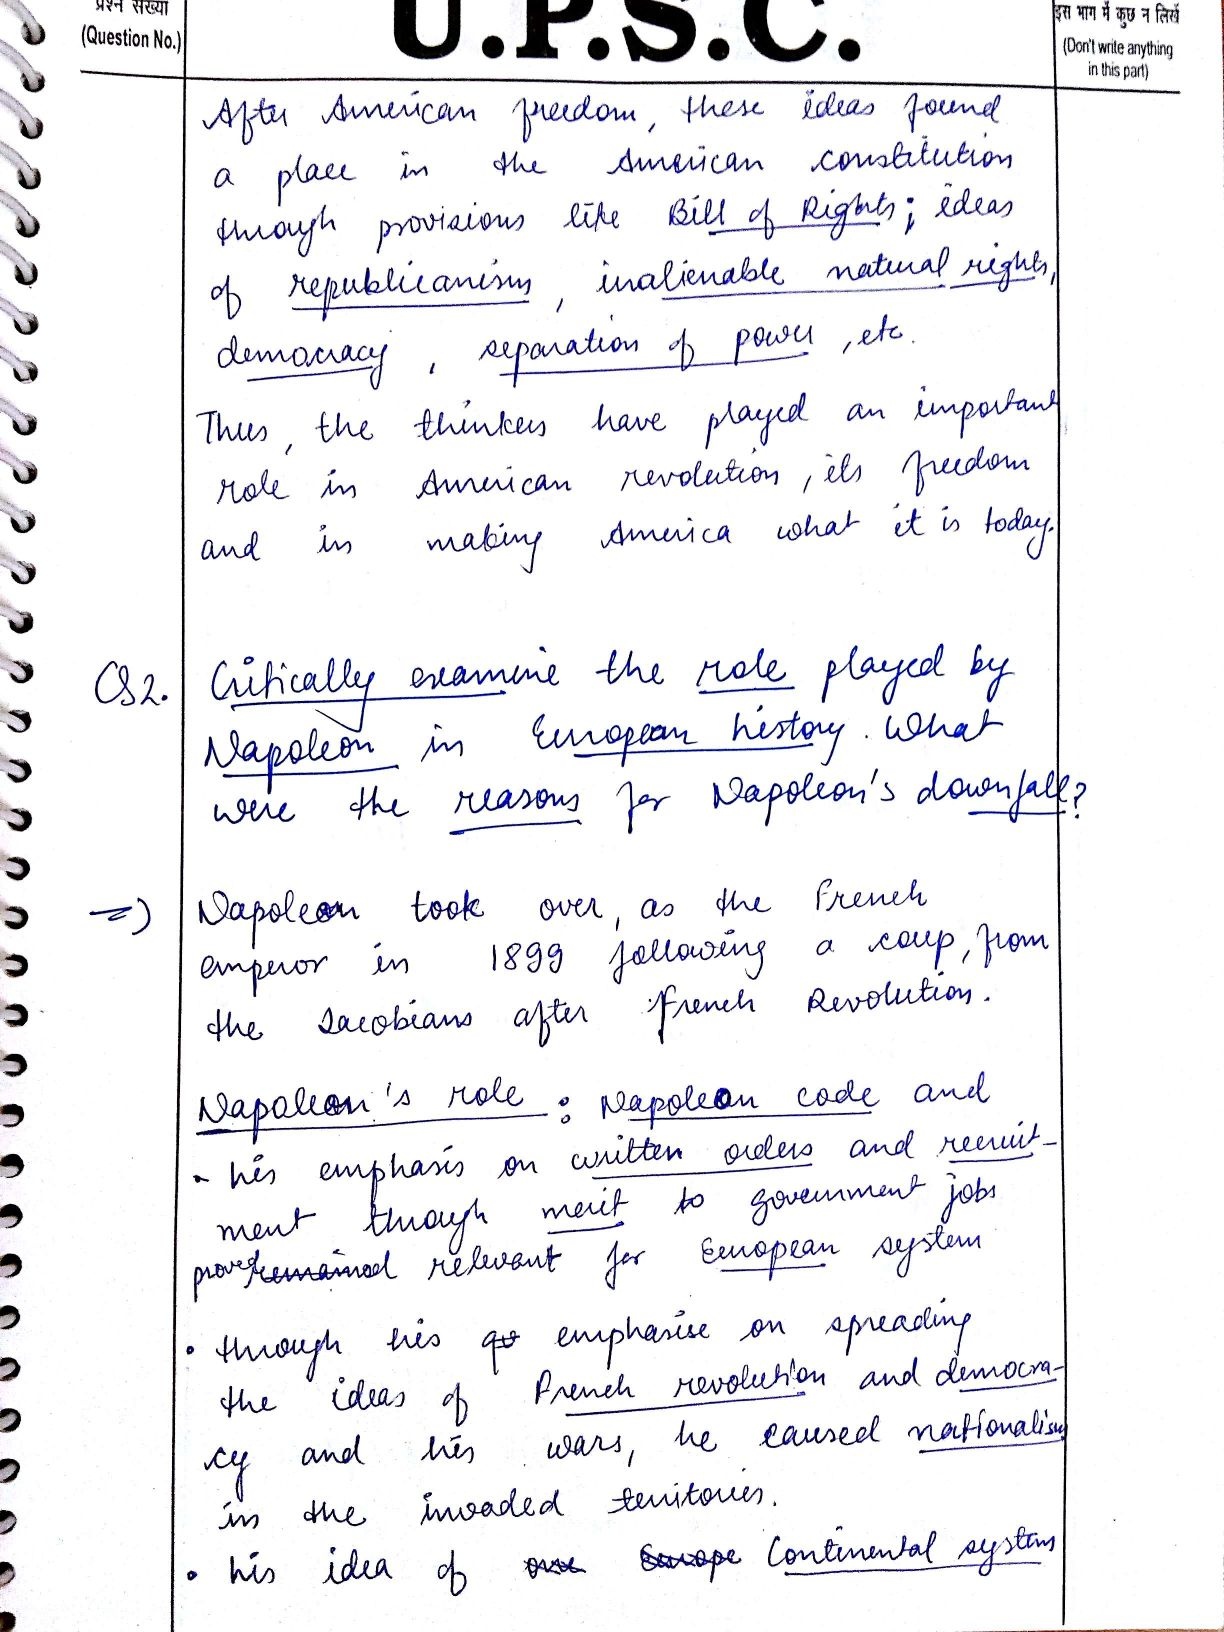 प्रश्न संख्या
(Question No.)
U.P.S.C.
इस भाग में कुछ न लिखें
(Don't write anything
in this part)
After American freedom, these ideas found
a place in the American constitution
through provisions like Bill of Rights; ideas
of republicanism, inalienable natural rights,
democracy, separation of power, etc.
Thus, the thinkers have played an important
role in American revolution, its freedom
and in making America what it is today.
Q2. Critically examine the role played by
Napoleon in European history. What
were the reasons for Napoleon's downfall?
=) Napoleon took over, as the French
emperor in 1899 following a coup, from
the Jacobians after French Revolution.
Napoleon's role : Napoleon code and
- his emphasis on written orders and recruit-
ment through merit to government jobs
proved remained relevant for European system
• through his emphasise on spreading
the ideas of French revolution and democra-
cy and his wars, he caused nationalism
in the invaded territories.
• his idea of one Europe Continental systems